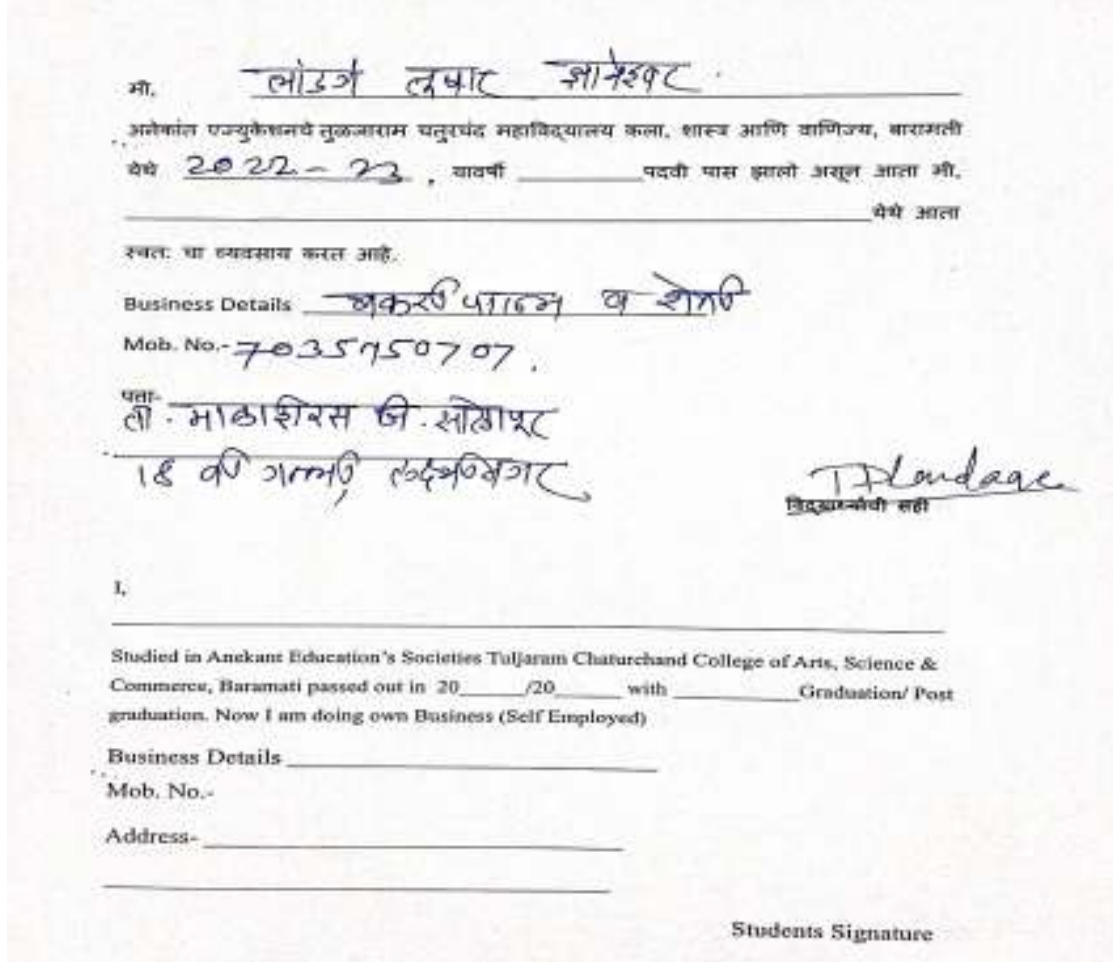 मी, लांडगे तुषार ज्ञानेश्वर.
अनेकांत एज्युकेशनचे तुळजाराम चतुरचंद महाविद्यालय कला, शास्त्र आणि वाणिज्य, बारामती
येथे 2022-23, यावर्षी ________ पदवी पास झालो असून आता मी,
________ येथे आता
स्वतः चा व्यवसाय करत आहे.
Business Details बकरी पालन व शेती
Mob. No.- 7035750707.
पत्ता-
ता. माळशिरस जि. सोलापूर
18 वी गल्ली,
T D Landage
विद्यार्थ्याची सही
I,
Studied in Anekant Education's Societies Tuljaram Chaturchand College of Arts, Science &
Commerce, Baramati passed out in 20____/20____ with ________ Graduation/ Post
graduation. Now I am doing own Business (Self Employed)
Business Details ________
Mob. No.-
Address- ________
Students Signature